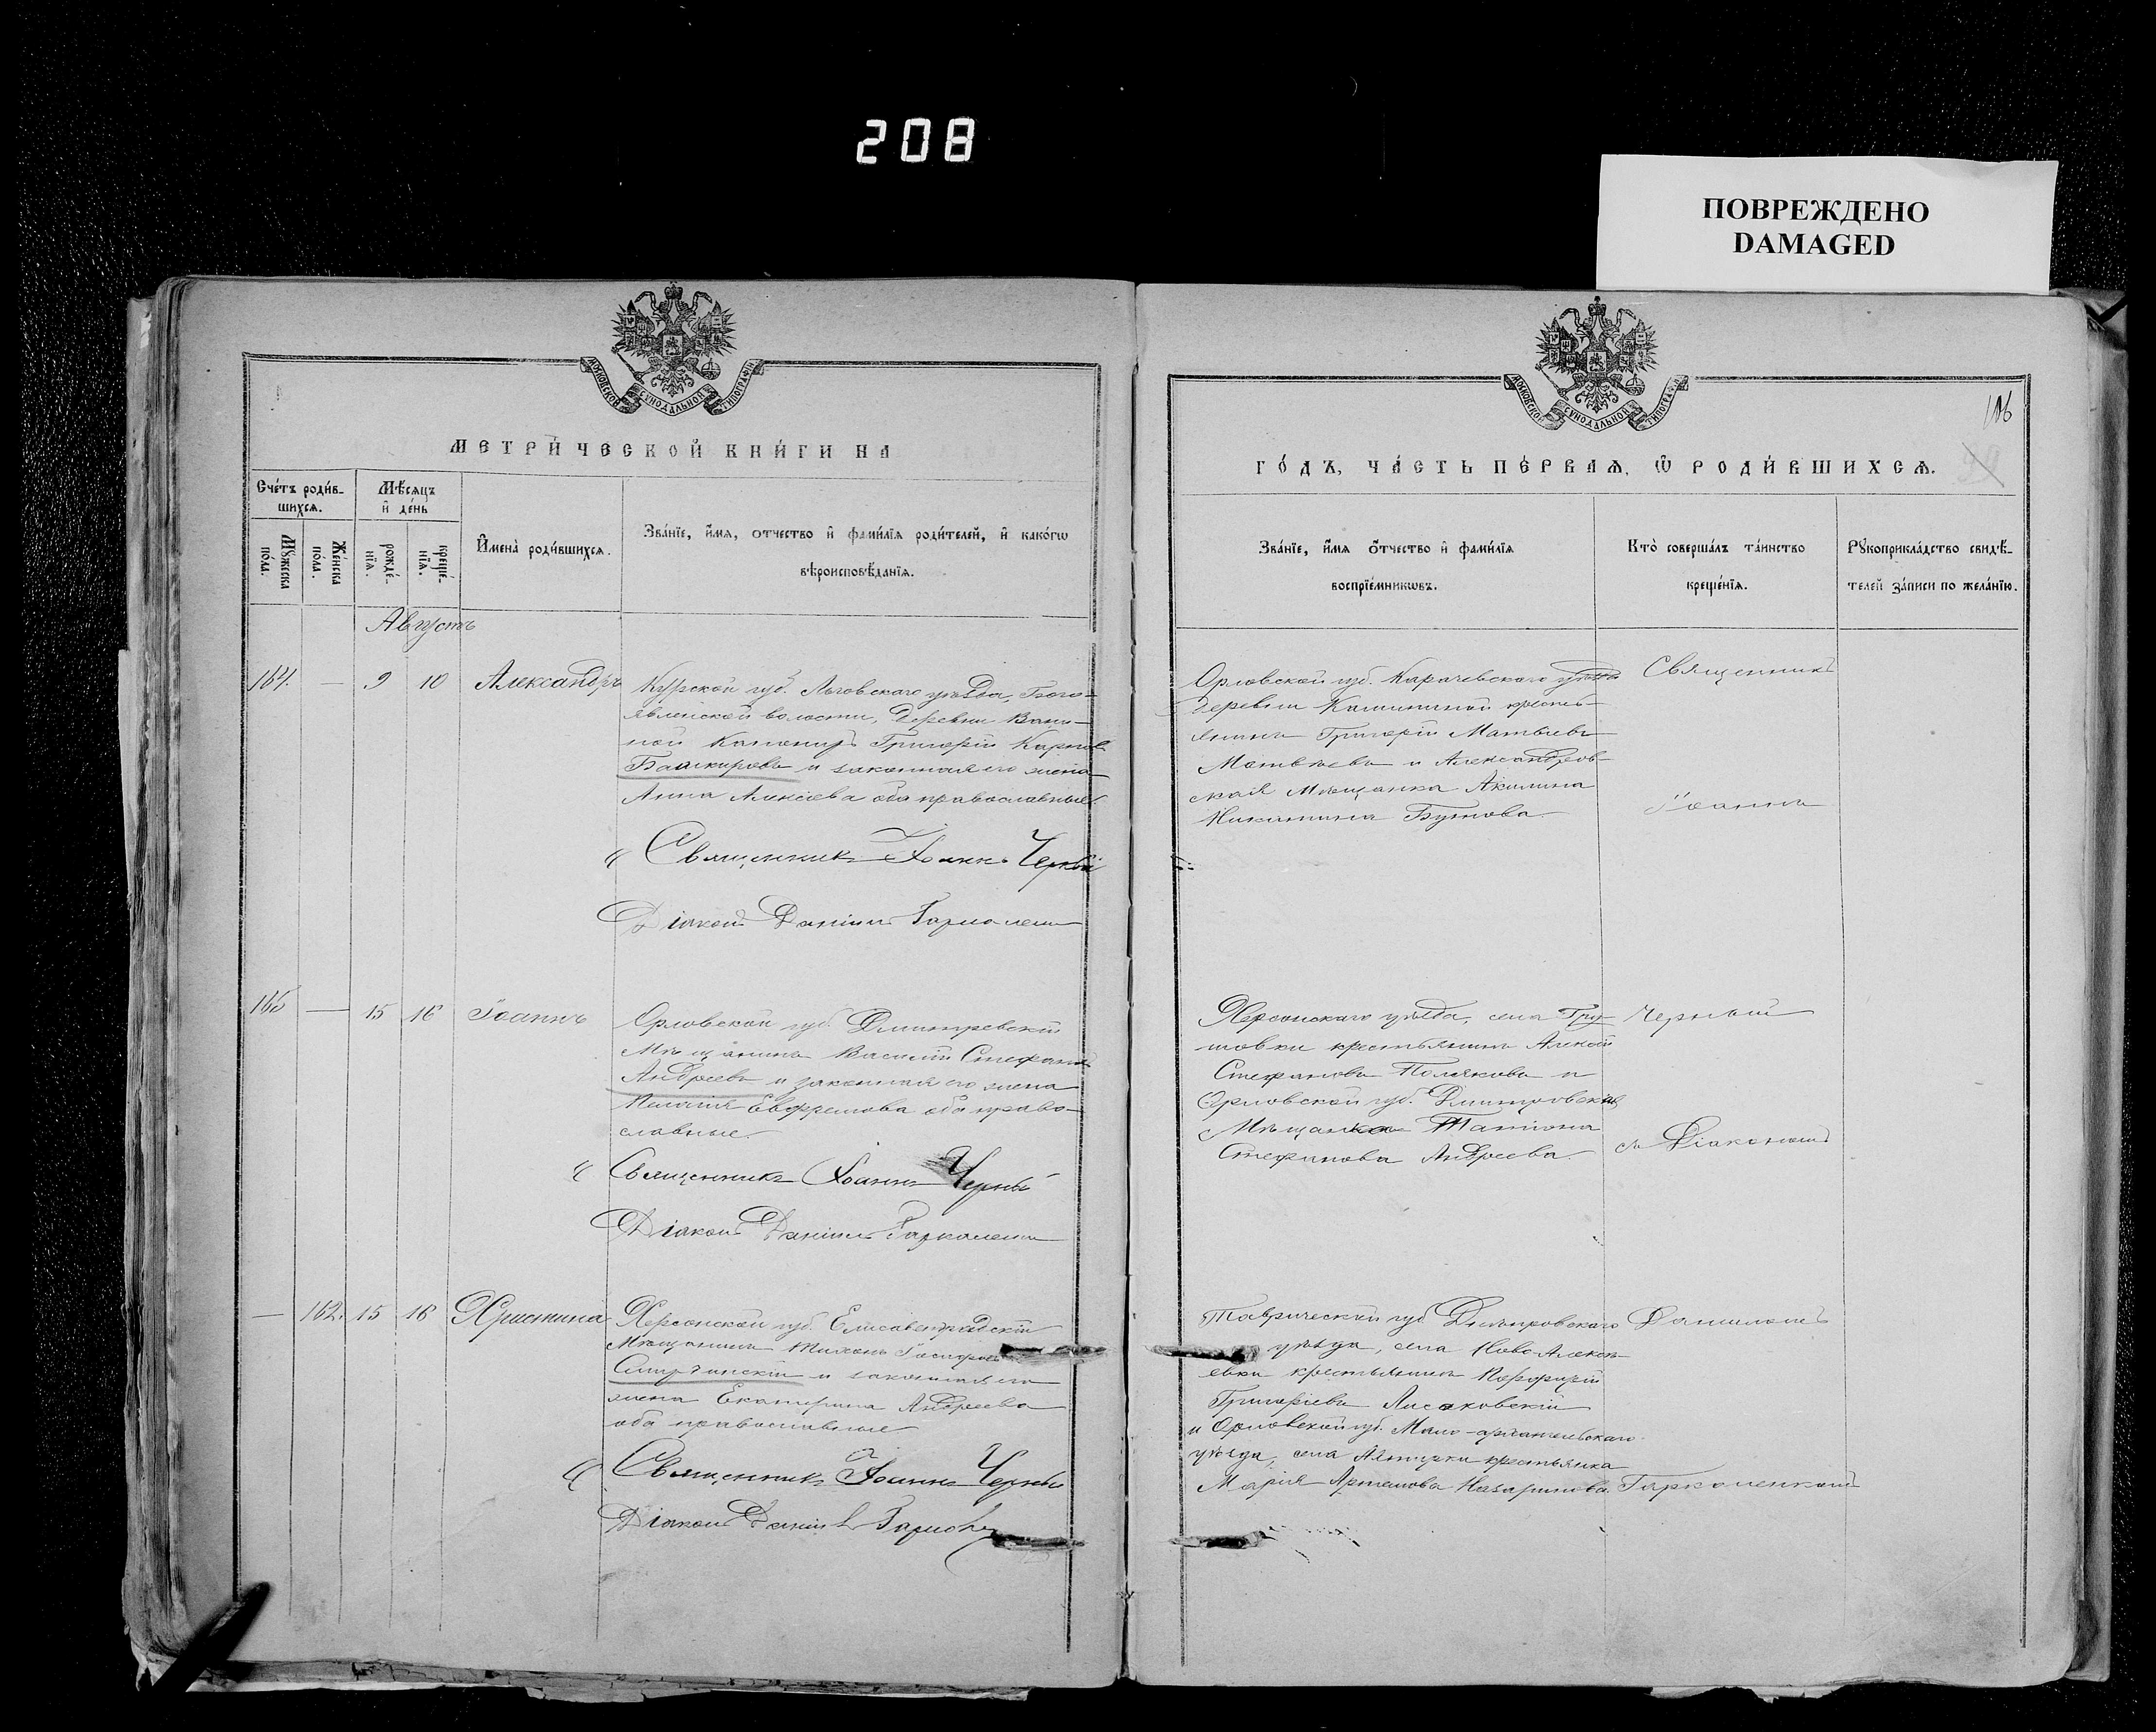 208
ПОВРЕЖДЕНО
DAMAGED
МОСКОВСКОЙ СѴНОДАЛЬНОЙ ТИПОГРАФІИ
МЕТРИ́ЧЕСКОЙ КНИ́ГИ НА
Сче́тъ роди́в-
шихсѧ.
Мѣ́сѧцъ
и҆ де́нь
Мꙋ́жеска
по́ла.
Же́нска
по́ла.
рожде́-
нїѧ.
креще́-
нїѧ.
И҆мена̀ роди́вшихсѧ.
Зва́нїе, и҆́мѧ, ѻ҆́тчество и҆ фами́лїѧ роди́телей, и҆ како́гѡ
вѣроисповѣ́данїѧ.
Августъ
164. — 9 10 Александръ
Курской губ. Льговскаго уѣзда, Бого-
явленской волости, деревни Вани-
ной Григорій Карповъ
Башкировъ и законная его жена
Анна Алексіева оба православные.
Священникъ Іоаннъ Черный
Діаконъ Даніилъ
165 — 15 16 Іоаннъ
Орловской губ. Дмитровскій
Мѣщанинъ Василій Стефановъ
Андреевъ и законная его жена
Евфремова оба право-
славные.
Священникъ Іоаннъ Черный
Діаконъ Даніилъ
— 162. 15 16 Христина
Херсонской губ. Елисаветградскій
Мѣщанинъ Тихонъ
и законная его
жена Екатерина Андреева
оба православные
Священникъ Іоаннъ Черный
Діаконъ Даніилъ
МОСКОВСКОЙ СѴНОДАЛЬНОЙ ТИПОГРАФІИ
ГО́ДЪ, ЧА́СТЬ ПЕ́РВАѦ, Ѽ РОДИ́ВШИХСѦ.
Зва́нїе, и҆́мѧ ѻ҆́тчество и҆ фами́лїѧ
воспрїе́мникѡвъ.
Кто̀ соверша́лъ та́инство
креще́нїѧ.
Рꙋкоприкла́дство свидѣ́-
телей за́писи по жела́нїю.
Орловской губ. Карачевскаго уѣзда
деревни кресть-
янинъ Григорій Матвѣевъ
Матвѣевъ и Александров-
ская мѣщанка Акилина
Никитина
Священникъ
Іоаннъ
Херсонскаго уѣзда, села Гру-
шовки крестьянинъ Алексій
Стефановъ Поляковъ и
Орловской губ. Дмитровская
Мѣщанка Татіана
Стефанова Андреева.
Черный
съ Діакономъ
Таврической губ. Днѣпровскаго
уѣзда, села Ново-Алексѣ-
евки крестьянинъ Порфирій
Григоріевъ Лисаковскій
и Орловской губ. Мало-архангельскаго
уѣзда, села крестьянка
Марія Артемова
Даніиломъ